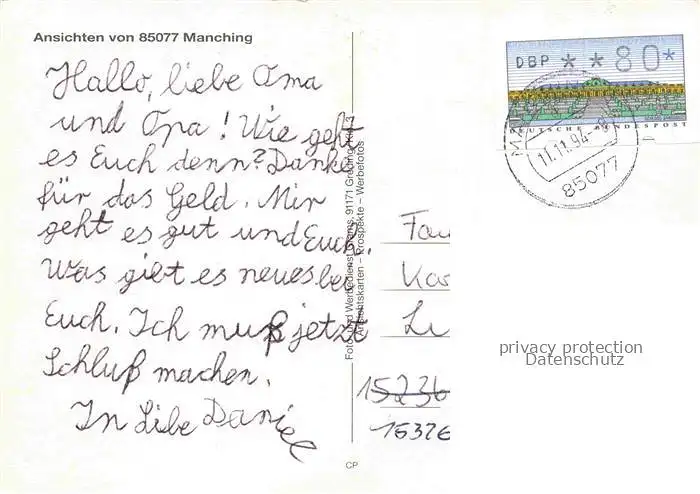 Ansichten von 85077 Manching
Hallo, liebe Oma
und Opa! Wie geht
es Euch denn? Danke
für das Geld. Mir
geht es gut und Euch.
Was gibt es neues bei
Euch. Ich muß jetzt
Schluß machen.
In Libe Daniel
91171
Ansichtskarten – Prospekte – Werbefotos
CP
DBP **80*
DEUTSCHE BUNDESPOST
11.11.94
85077
Fam
Kar
Lu
15236
15326
privacy protection
Datenschutz